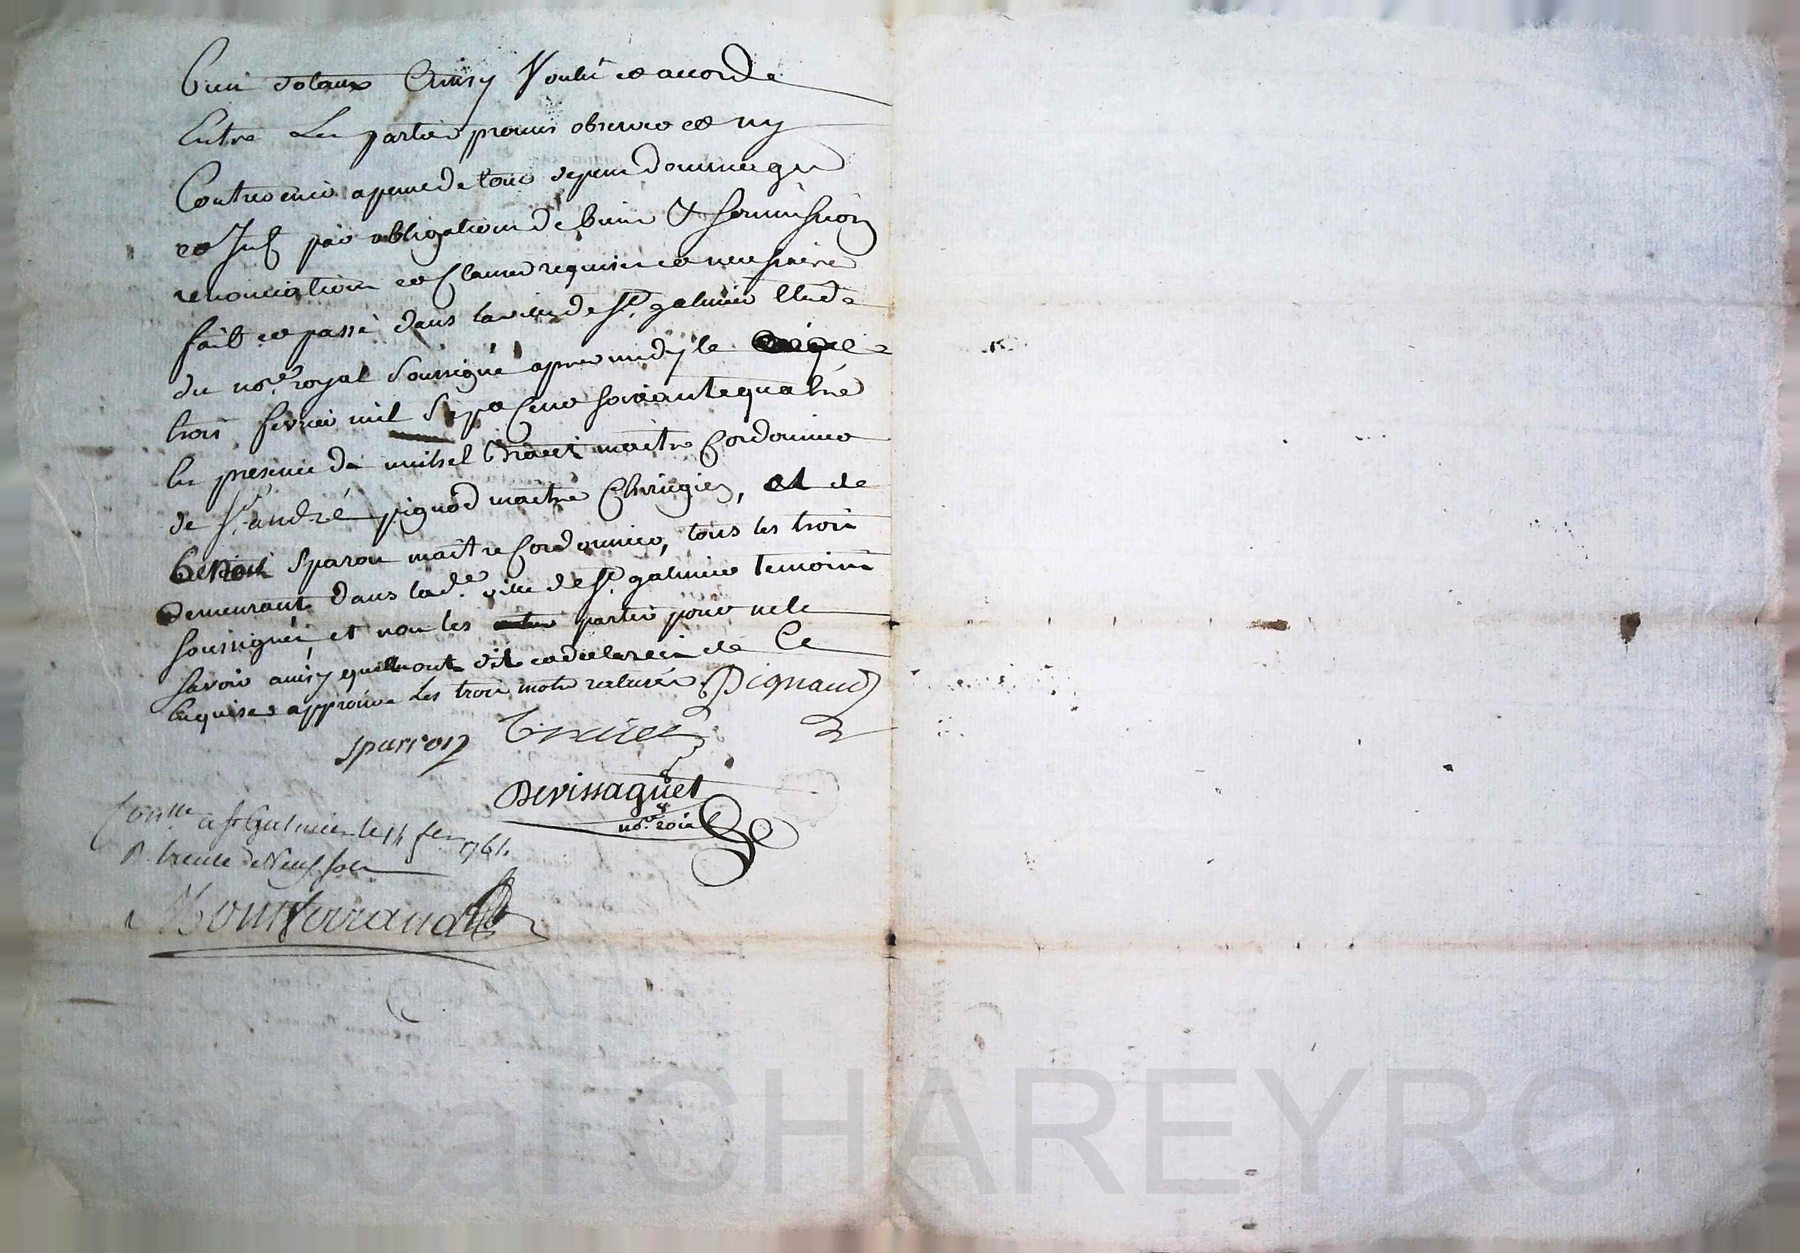 bien dotaux Ainsy Voulu et accordé
Entre Les parties promis observer et ny
Contrevenir a peine de tous depens dommages
et Int. par obligations de biens & soumission
renonciation et Clauses requises et necessaires
fait et passé dans la ville de St. galmier Etude
du nore. royal soussigné apres midy le
trois fevrier mil Sept Cent soixante quatre
En presence de michel maitre Cordonnier
de Sr. andré pignod maitre Chirugien, et de
benoit Sparon maitre Cordonnier, tous les trois
demeurants dans lade. ville de St. galmier temoins
soussignés et non les parties pour ne le
savoir ainsy quelles ont dit et declaré de Ce
Enquises approuve Les trois mots raturés. Pignaud
sparron
Devissaguet
nore. roial
Conllé a St Galmier le 14 fer 1764
R. trente Neuf sols
Montferrand
scal CHAREYRON